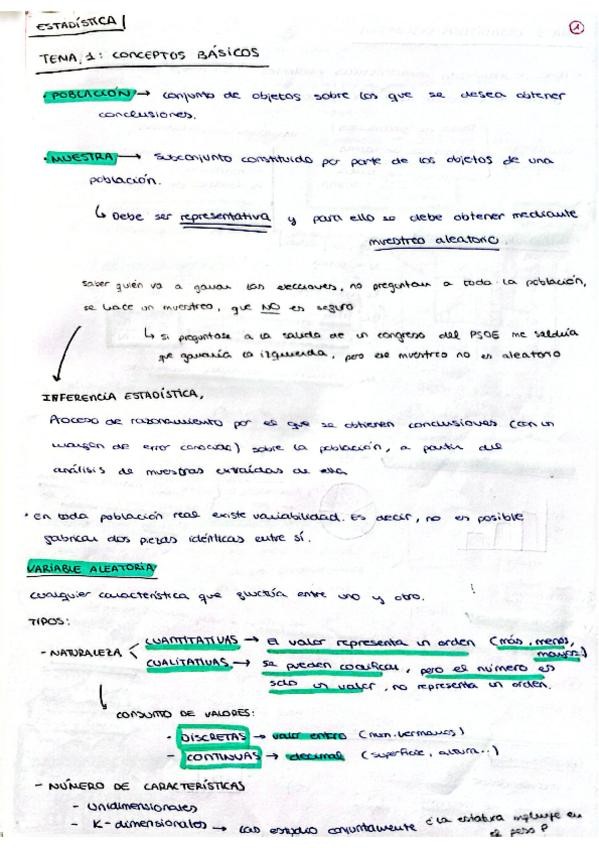 ESTADÍSTICA
1
TEMA 1: CONCEPTOS BÁSICOS
· POBLACIÓN → conjunto de objetos sobre los que se desea obtener
conclusiones.
· MUESTRA → subconjunto constituido por parte de los objetos de una
población.
↳ Debe ser representativa y para ello se debe obtener mediante
muestreo aleatorio.
saber quién va a ganar las elecciones, no preguntan a toda la población,
se hace un muestreo, que NO es seguro
↳ si preguntase a la salida de un congreso del PSOE me saldría
que ganaría la izquierda, pero ese muestreo no es aleatorio
INFERENCIA ESTADÍSTICA,
Proceso de razonamiento por el que se obtienen conclusiones (con un
margen de error conocido) sobre la población, a partir del
análisis de muestras extraídas de ella
· en toda población real existe variabilidad. Es decir, no es posible
fabricar dos piezas idénticas entre sí.
VARIABLE ALEATORIA
cualquier característica que fluctúa entre uno y otro.
TIPOS:
- NATURALEZA < CUANTITATIVAS → el valor representa un orden (más, menos,
mayor)
CUALITATIVAS → se pueden codificar, pero el número es
solo un valor, no representa un orden.
CONJUNTO DE VALORES:
- DISCRETAS → valor entero (num. hermanos)
- CONTINUAS → decimal (superficie, altura..)
- NÚMERO DE CARACTERÍSTICAS
- Unidimensionales
- K-dimensionales → las estudio conjuntamente ¿la estatura influye en
el peso?